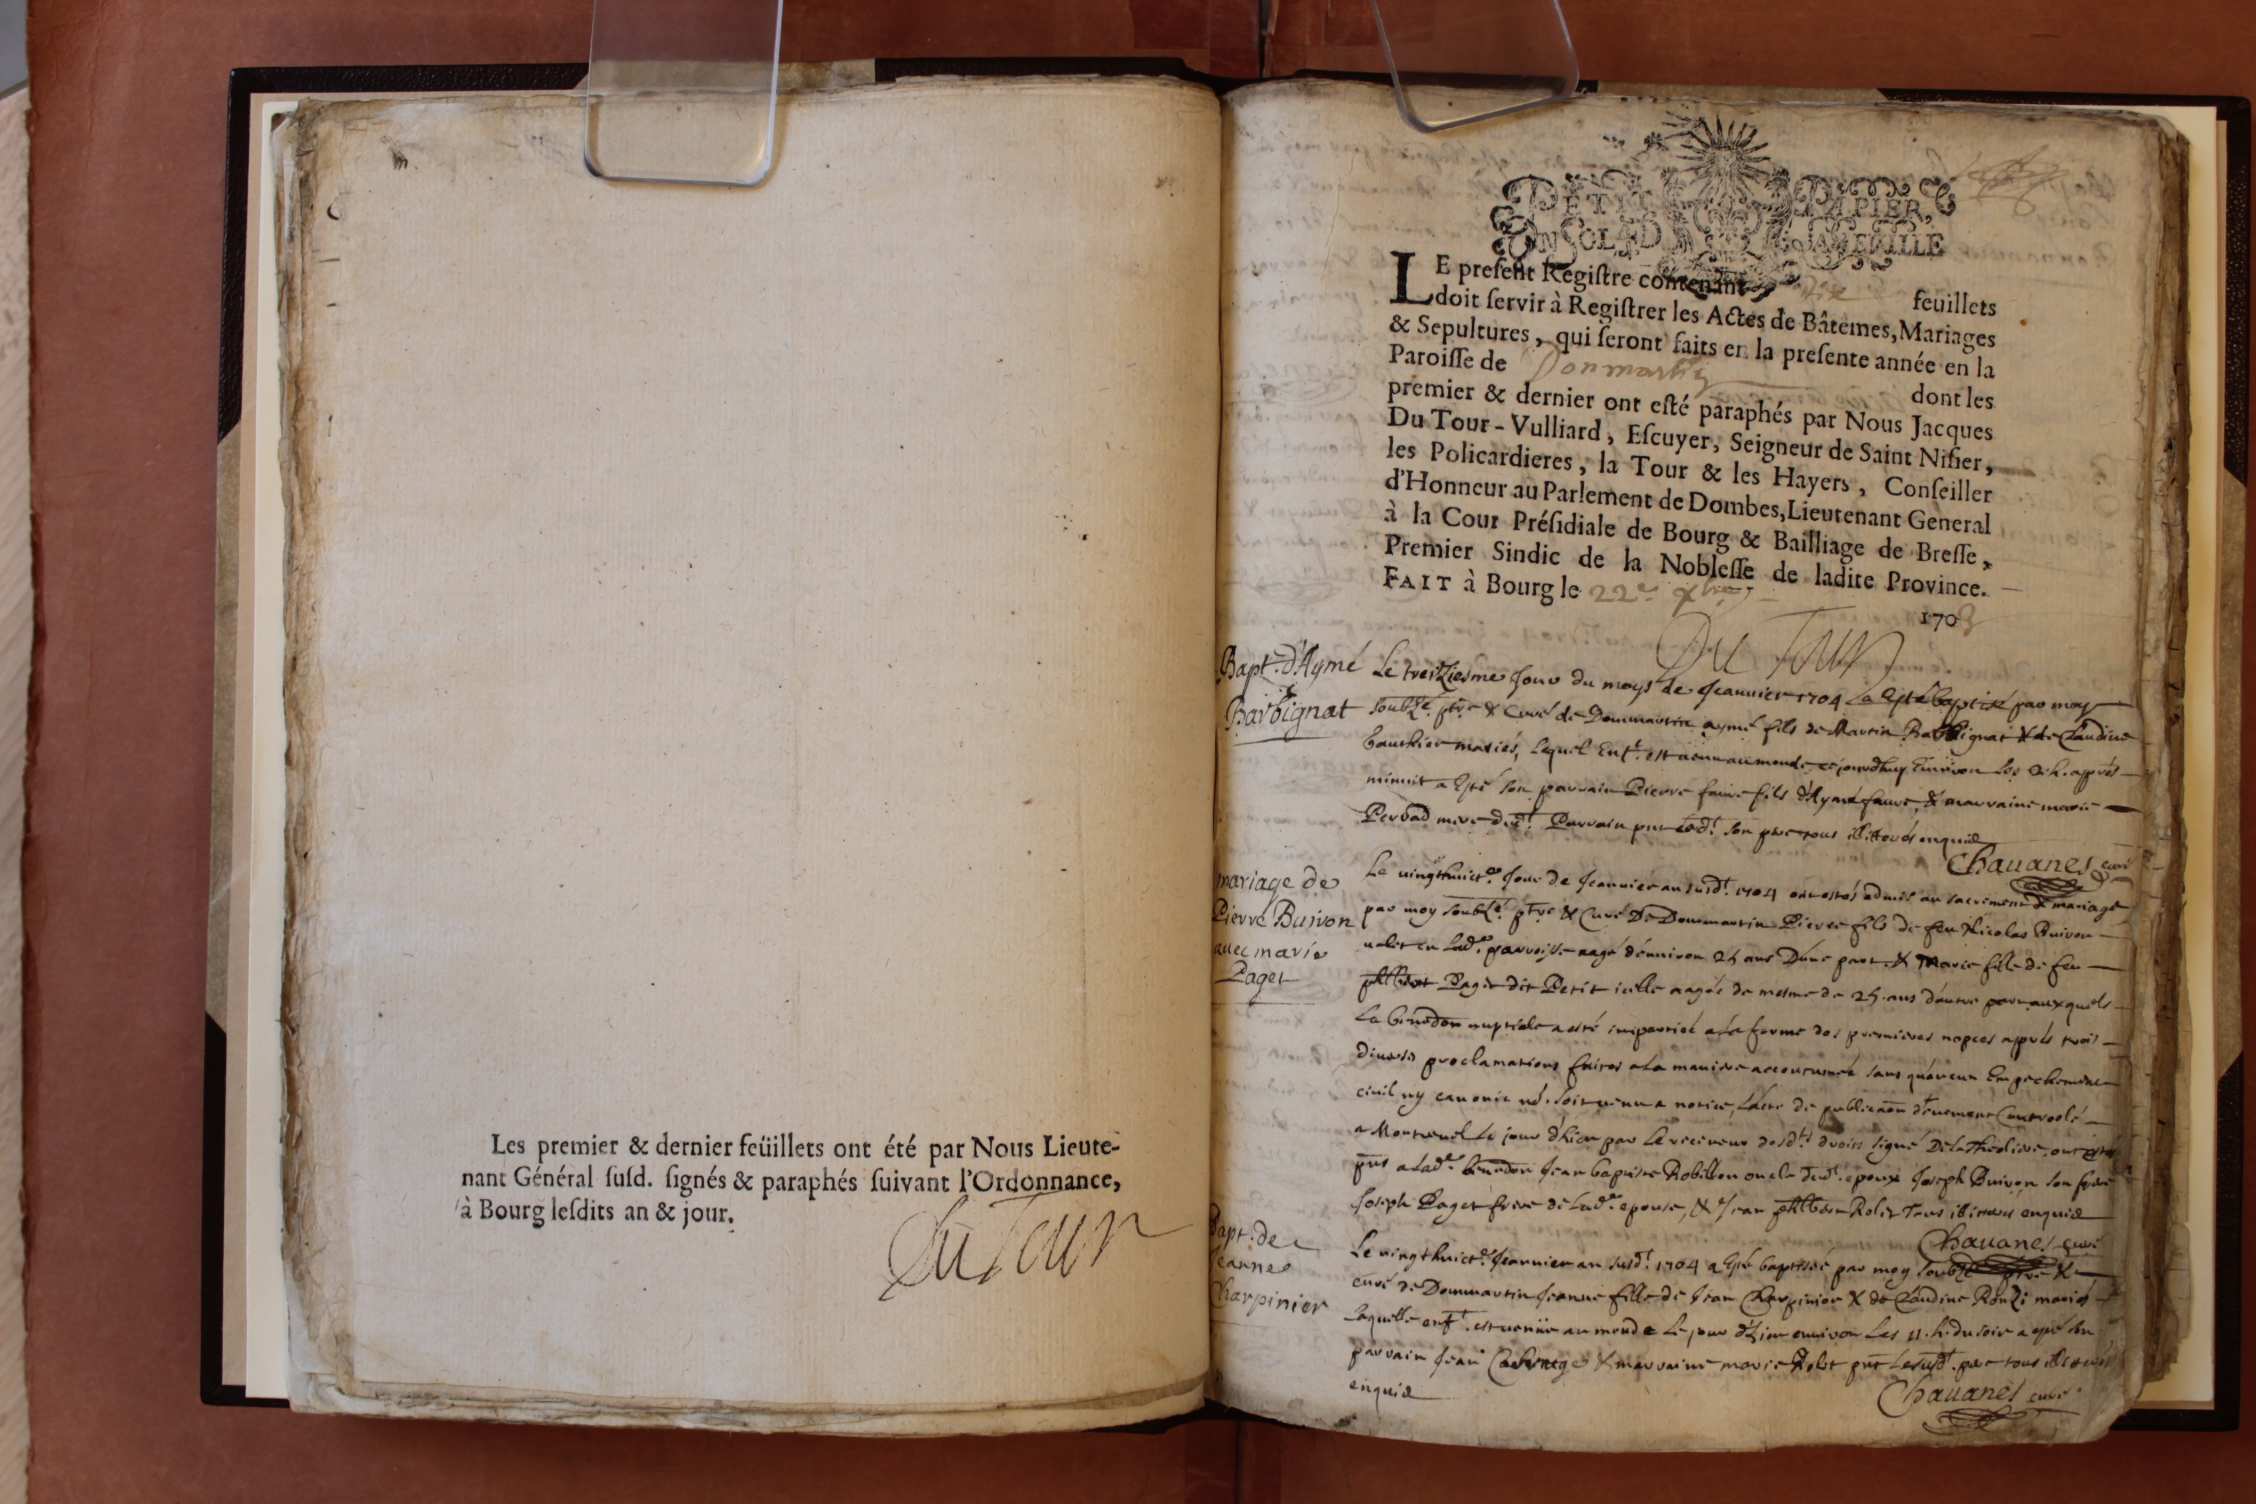 Les premier & dernier feüillets ont été par Nous Lieute-
nant Général susd. signés & paraphés suivant l'Ordonnance,
à Bourg lesdits an & jour.
Du Tour
PETIT PAPIER,
UN SOL 4 D LA FEUILLE
LE present Registre contenant six feuillets
doit servir à Registrer les Actes de Bâtemes, Mariages
& Sepultures, qui seront faits en la presente année en la
Paroisse de Donmartin dont les
premier & dernier ont esté paraphés par Nous Jacques
Du Tour-Vulliard, Escuyer, Seigneur de Saint Nisier,
les Policardieres, la Tour & les Hayers, Conseiller
d'Honneur au Parlement de Dombes, Lieutenant General
à la Cour Présidiale de Bourg & Bailliage de Bresse,
Premier Sindic de la Noblesse de ladite Province.
FAIT à Bourg le 22e xbre
1703
Du Tour
Bapt. d'Aymé
Barbignat
Le treiziesme Jour du moys de Jeanuier 1704 a esté baptisé par moy
soubzé. ptre & Curé de Dommartin aymé fils de Martin Barbignat & de Claudine
Gauthier mariés, lequel enft. est venu au monde ce jourdhuy enuiron les 2 h. apprés
minuit a esté son parrain Pierre faure fils d'Aymé faure, & marraine marie
Perrad mere dudt. Parrain pnt ledt. son pere tous illitterés enquis
Chauanes curé
mariage de
Pierre Buiron
auec marie
Paget
Le vingthuicte. Jour de Jeanuier an susdt. 1704 ont estés admis au sacrement de mariage
par moy soubzé. ptre & Curé De Dommartin Pierre fils de feu Nicolas Buiron
valet en lade. parroisse aagé d'enuiron 25 ans D'une part & Marie fille de feu
philibert Paget dit Petit icelle aagée de mesme de 25 ans d'autre part auxquels
La benedon nuptiale a esté impartie a la forme des premieres nopces apprés trois
diuerses proclamations faites a la maniere accoutumée sans qu'aucun Empechement
civil ny canonic né. soit venu a notice, l'acte de publicaon d'euement Controolé
a Montreuel le jour d'hier par le receveur desdts. droits signé Delatheoliere. ont estés
pnts a lade. benedon Jean baptiste Robillon oncle dudt. epoux Joseph Buiron son frere
Joseph Paget frere de lade. epouse, & Jean philibert Rolet Tous illiteres enquis
Chauanes curé
Bapt. de
Jeanne
Charpinier
Le vingthuicte. Jeanuier an susdt. 1704 a Esté baptisée par moy soubzé ptre &
curé de Dommartin Jeanne fille de Jean Charpinier & de Claudine Ronzi mariés
laquelle enft. est venüe au monde le jour d'hier enuiron Les 11. h. du soir a esté son
parrain Jean & marraine marie Rolet pnt le susdt. pere tous illiterés
enquis
Chauanes curé